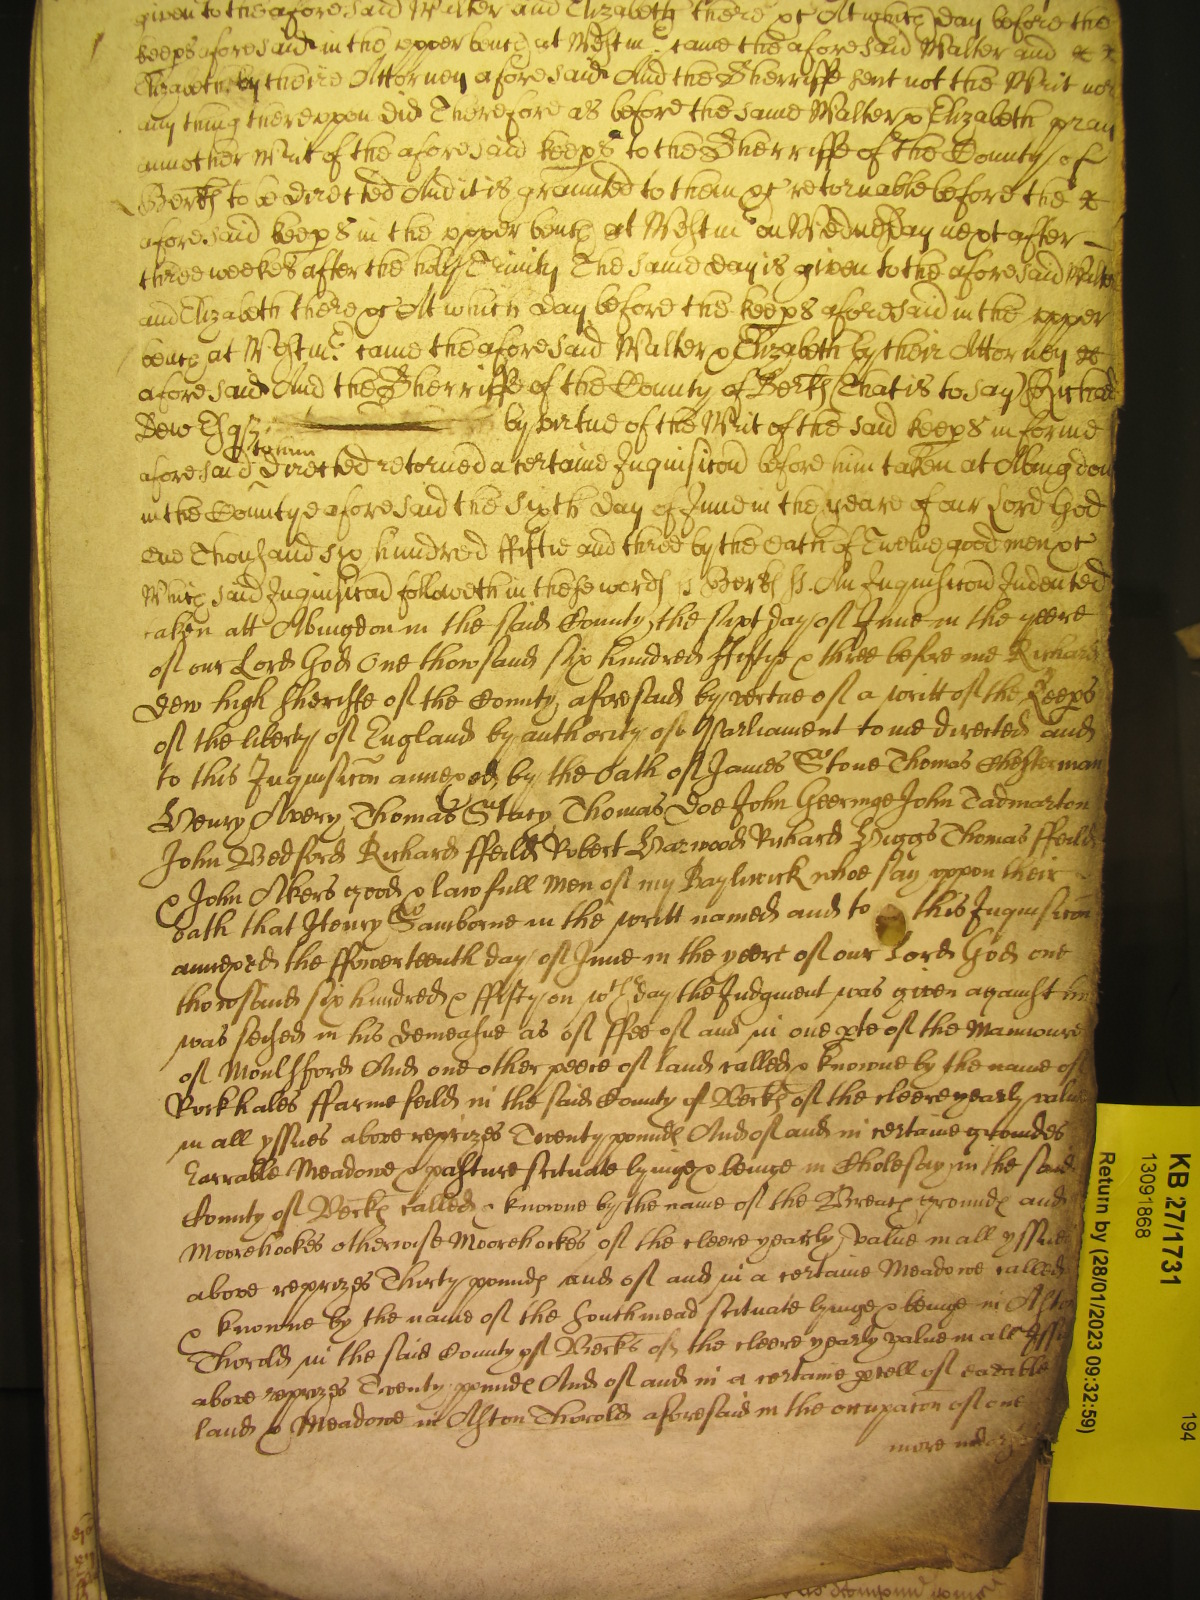 given to the aforesaid Walter and Elizabeth there &c At which day before the
keeps aforesaid in the upper bench at Westmr came the aforesaid Walter and
Elizabeth by theire Attorney aforesaid And the Sherriffe sent not the Writ nor
any thing thereupon did Therefore as before the same Walter & Elizabeth pray
annother Writ of the aforesaid keeps to the Sherriffe of the County of
Berks to be directed And it is graunted to them &c retornable before the
aforesaid keeps in the upper bench at Westmr on Wednesday next after
three weekes after the holy Trinity The same day is given to the aforesaid Walter
and Elizabeth there &c At which day before the keeps aforesaid in the upper
bench at Westmr came the aforesaid Walter & Elizabeth by their Attorney
aforesaid And the Sherriffe of the County of Berks (That is to say) Richard
Dew Esqr by virtue of the Writ of the said keeps in forme
aforesaid to him directed retorned a certaine Inquisicon before him taken at Abingdon
in the Countye aforesaid the sixth day of June in the yeare of our Lord God
One Thousand six hundred ffiftie and three by the Oath of Twelve good men &c
Which said Inquisicon followeth in these words Berks ss. An Inquisicon Indented
taken att Abingdon in the said County the sixt day of June in the yeere
of our Lord God One thowsand six hundred ffiftye & three before me Richard
Dew high sheriffe of the County aforesaid by vertue of a writt of the Keeps
of the liberty of England by authority of Parliament to me directed and
to this Inquisicon annexed by the Oath of James Stone Thomas Chesterman
Henry Avery Thomas Stacy Thomas Doe John Geeringe John Tadmarton
John Bedford Richard ffeild Robert Harwood Richard Higgs Thomas ffeild
& John Akers good & lawfull Men of my Baylwick whoe say uppon their
oath that Henry Samborne in the writt named and to this Inquisicon
annexed the ffowerteenth day of June in the yeere of our Lord God one
thowsand six hundred & ffifty on wch day the Judgment was given against him
was seised in his demeasne as of ffee of and in one pte of the Mannoure
of Moulsford And one other peece of land called & knowne by the name of
Rockhales ffarme feild in the said County of Berks of the cleere yearly value
in all yssues above reprizes Twenty pounds And of and in certaine groundes
Earrable Meadowe & pasture scituate lyinge & beinge in Cholesay in the said
County of Berks called & knowne by the name of the Breach grounds and
Moorehookes otherwise Moorehockes of the cleere yearly value in all yssues
above reprizes Thirty pounds and of and in a certaine Meadowe called
& knowne by the name of the Southmead scituate lyinge & beinge in Aston
Thorold in the said County of Berks of the cleere yearly value in all Yssu
above reprizes Twenty pounds And of and in a certaine pcell of earable
land & Meadowe in Aston Thorold aforesaid in the occupacon of one
more
KB 27/1731
13091868
Return by (28/01/2023 09:32:59)
194